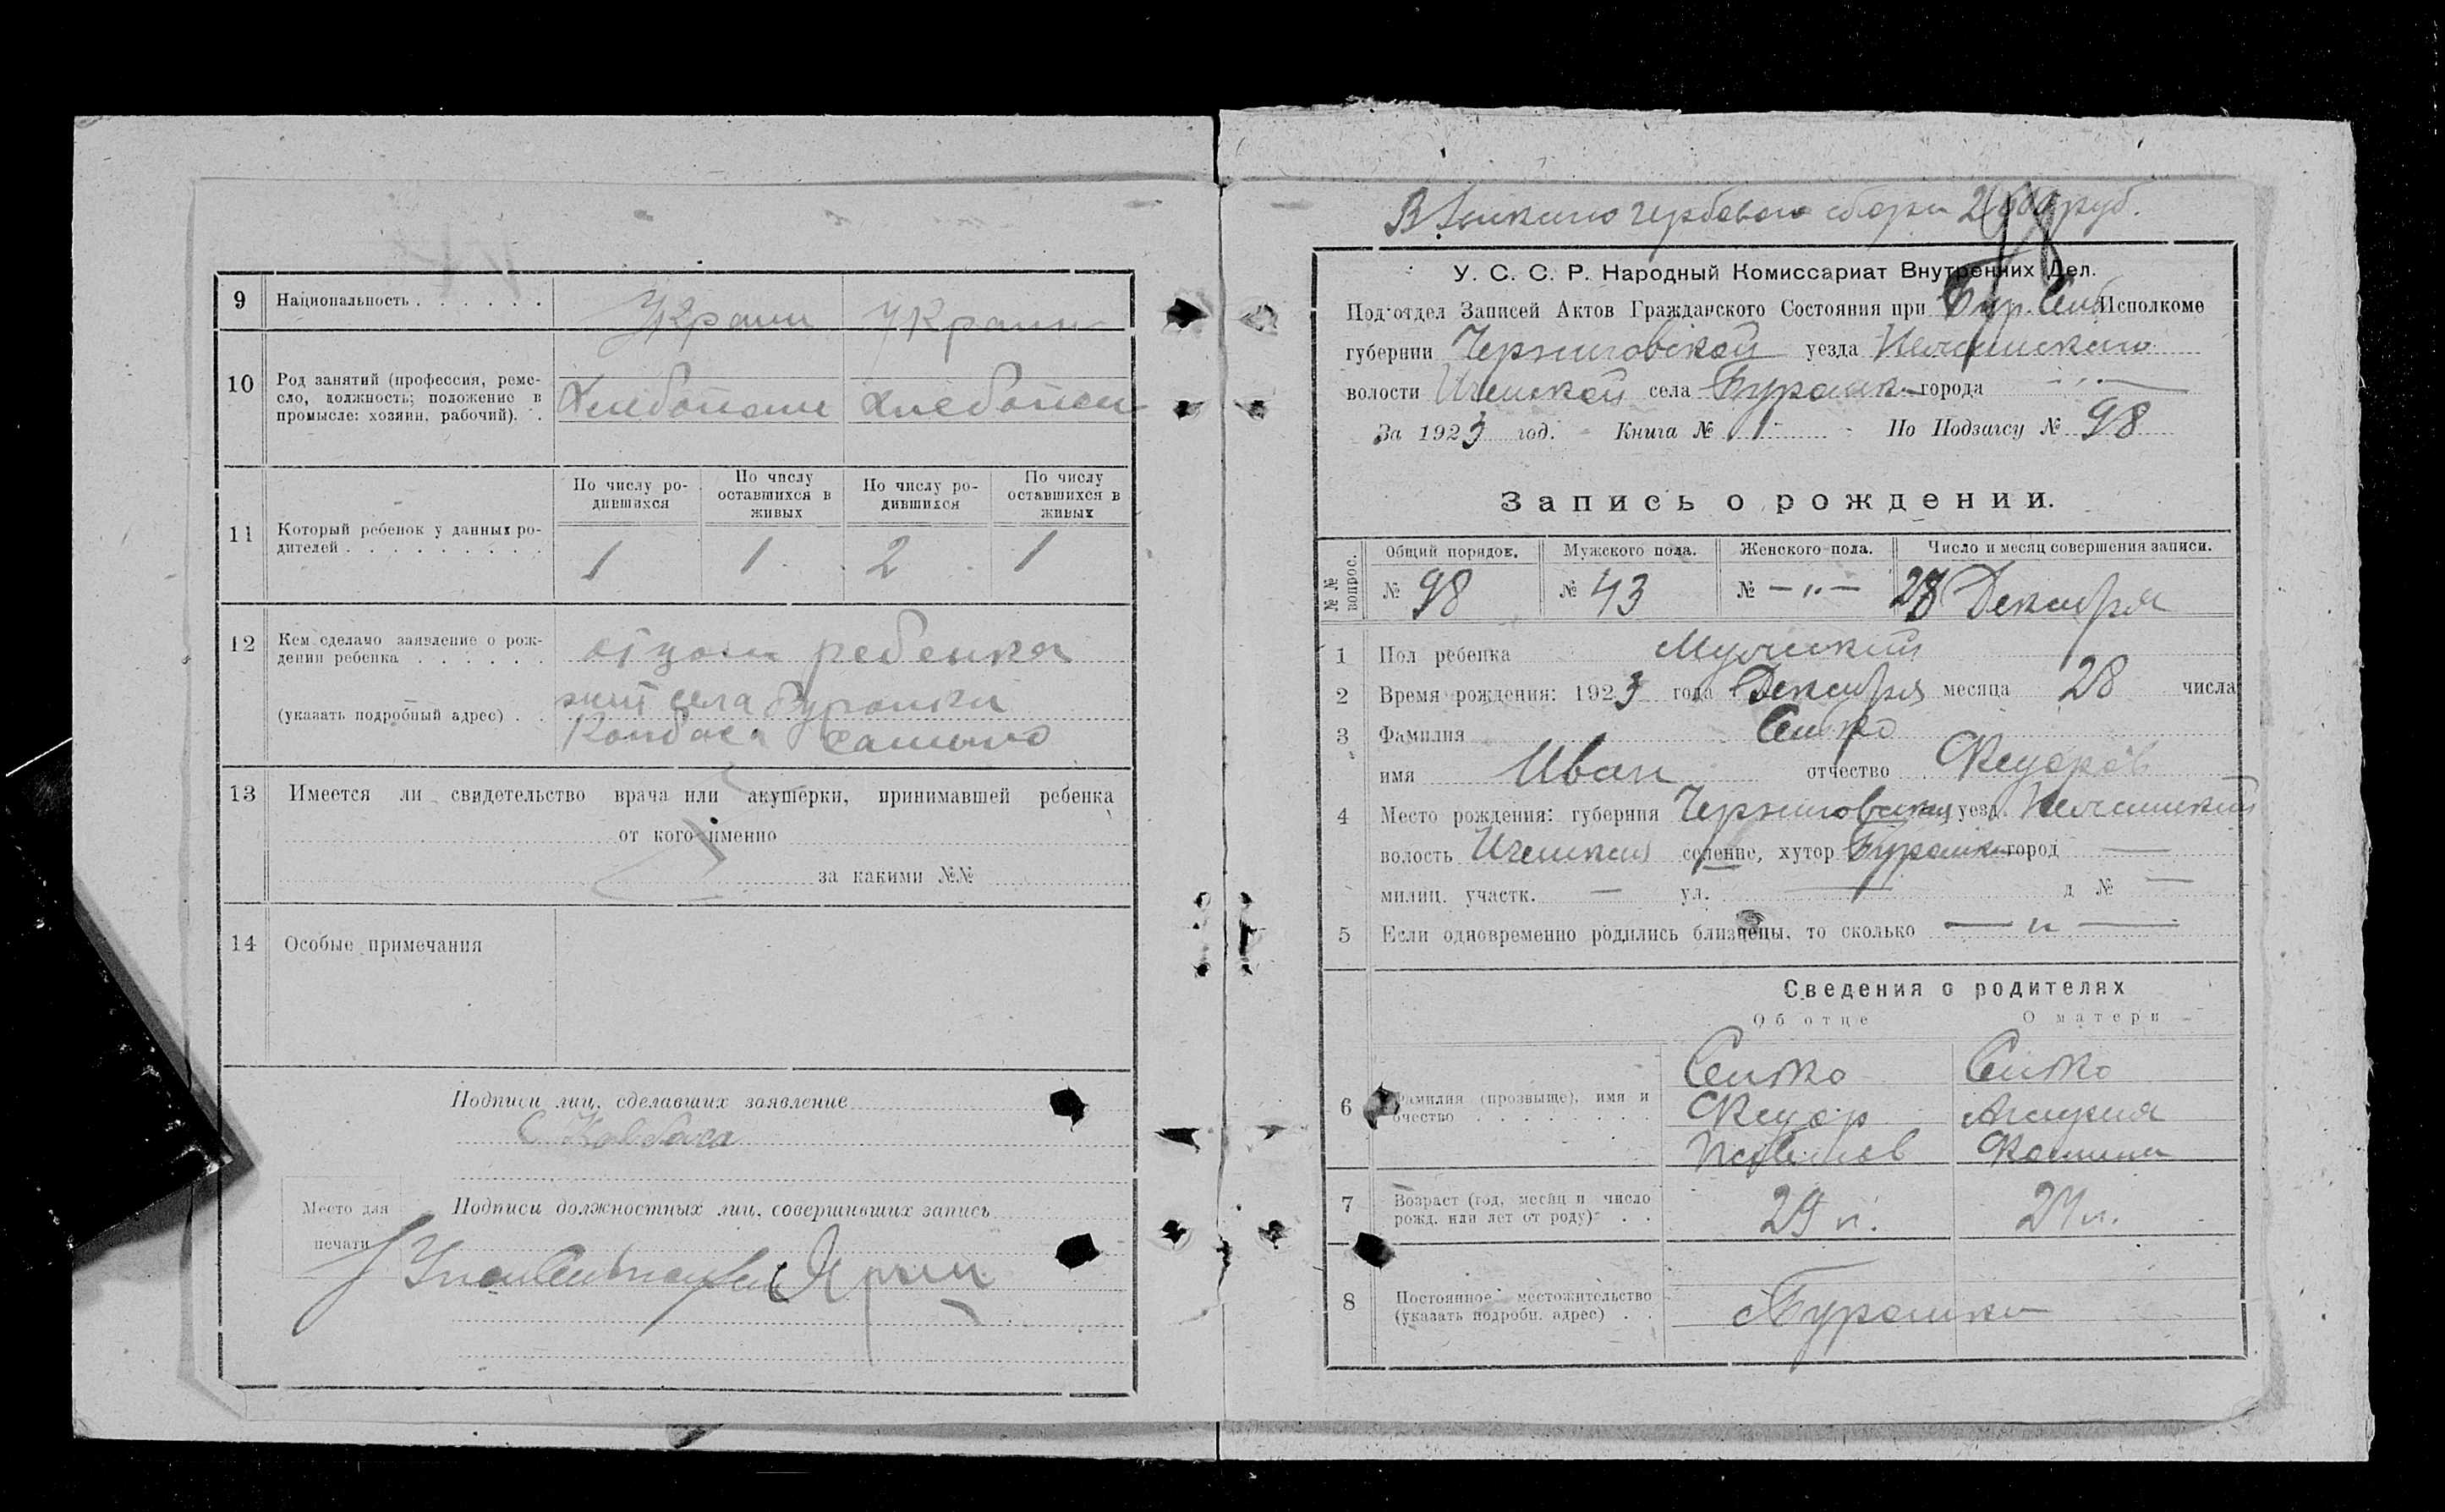 9 Национальность . . . . . . Украин Украин
10 Род занятий (профессия, реме-
сло, должность; положение в
промысле: хозяин, рабочий). .
Хлебопаш Хлебопаш
По числу ро-
дившихся
По числу
оставшихся в
живых
По числу ро-
дившихся
По числу
оставшихся в
живых
11 Который ребенок у данных ро-
дителей . . . . . . . . .
1 1 2 1
12 Кем сделано заявление о рож-
дении ребенка . . . . . .
отцом ребенка
(указать подробный адрес) . .
жит села
Колбаса
13 Имеется ли свидетельство врача или акушерки, принимавшей ребенка
от кого именно
за какими №№
14 Особые примечания
Подписи лиц, сделавших заявление
С Колбаса
Место для
печати
Подписи должностных лиц, совершивших запись
гербового сбора руб.
У. С. С. Р. Народный Комиссариат Внутренних Дел.
Под'отдел Записей Актов Гражданского Состояния при Бур. Сель Исполкоме
губернии Черниговской уезда Нежинского
волости Иченской села города —〃—
За 1923 год. Книга № 1 По Подзагсу № 98
Запись о рождении.
№ № вопрос.
Общий порядок. Мужского пола. Женского пола. Число и месяц совершения записи.
№ 98 № 43 № —〃— 28 Декабря
1 Пол ребенка Мужский
2 Время рождения: 1923 года Декабря месяца 28 числа
3 Фамилия
имя Иван отчество Федоров
4 Место рождения: губерния Черниговская уезд. Нежинский
волость Иченская селение, хутор город —
милиц. участк. — ул. — д № —
5 Если одновременно родились близнецы, то сколько —〃—
Сведения о родителях
Об отце О матери
6 Фамилия (прозвыще), имя и
очество . . . . . . . .
Федор
7 Возраст (год, месяц и число
рожд. или лет от роду) . .
29 л. 27 л.
8 Постоянное местожительство
(указать подробн. адрес) . .